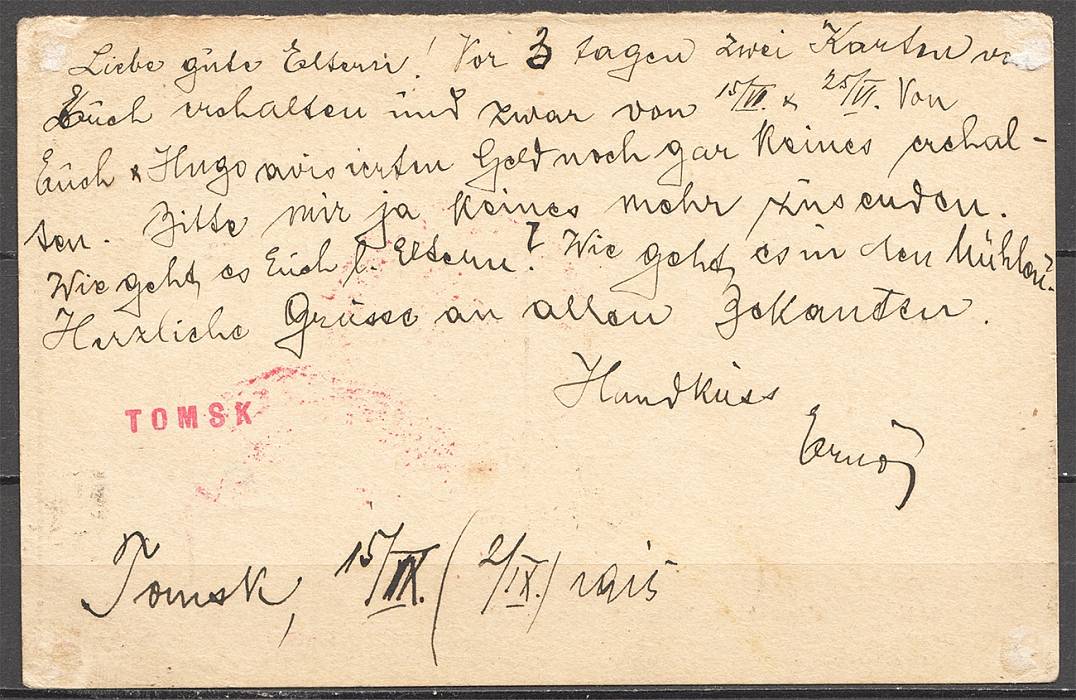 Liebe gute Eltern! Vor 3 tagen zwei Karten
Euch erhalten und zwar von 15/VI. & 25/VI. Von
Euch & Hugo avisierten Geld noch gar keines erhal-
ten. Bitte mir ja keines mehr zusenden.
Wie geht es Euch l. Eltern? Wie geht es in den Mühlen?
Herzliche Grüsse an allen Bekanten.
Handkuss
Ernő
TOMSK
Tomsk, 15/IX. (2/IX.) 1915